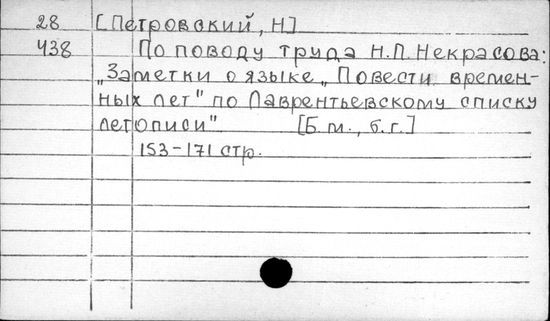 28 [Петровский, Н]
438 По поводу труда Н.П. Некрасова:
„Заметки о языке „Повести времен-
ных лет" по Лаврентьевскому списку
летописи" [Б.м., б.г.]
153-171 стр.